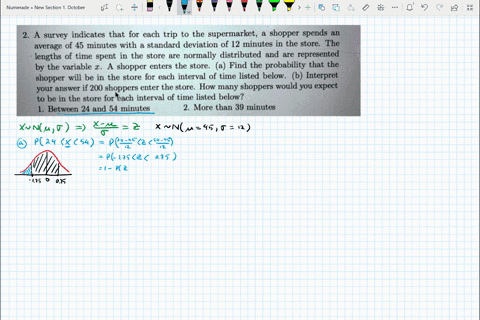 Numerade » New Section 1. October
2. A survey indicates that for each trip to the supermarket, a shopper spends an
average of 45 minutes with a standard deviation of 12 minutes in the store. The
lengths of time spent in the store are normally distributed and are represented
by the variable x. A shopper enters the store. (a) Find the probability that the
shopper will be in the store for each interval of time listed below. (b) Interpret
your answer if 200 shoppers enter the store. How many shoppers would you expect
to be in the store for each interval of time listed below?
1. Between 24 and 54 minutes 2. More than 39 minutes
X~N(μ, σ) => X-μ/σ = Z X~N(μ=45, σ=12)
(a) P(24 < X < 54) = P(24-45/12 < Z < 54-45/12)
= P(-1.75 < Z < 0.75)
= 1 - P(Z
-1.75 0 0.75